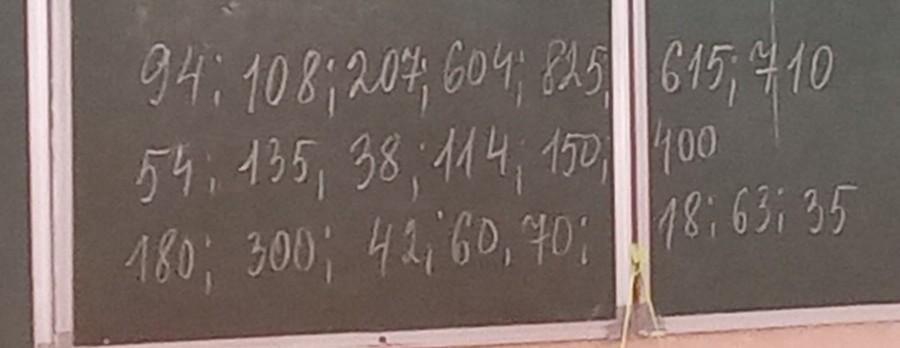 94; 108; 207; 604; 825; 615; 710
54; 135; 38; 114; 150; 400
180; 300; 42; 60, 70; 18; 63; 35